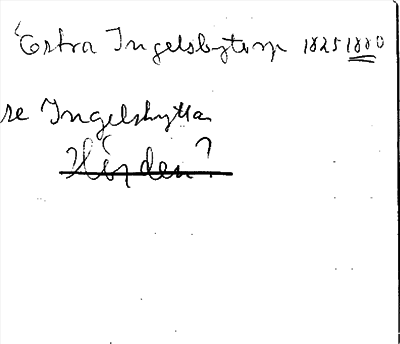 Östra Ingelsbytorp 1825 1880
se Ingelshyttan